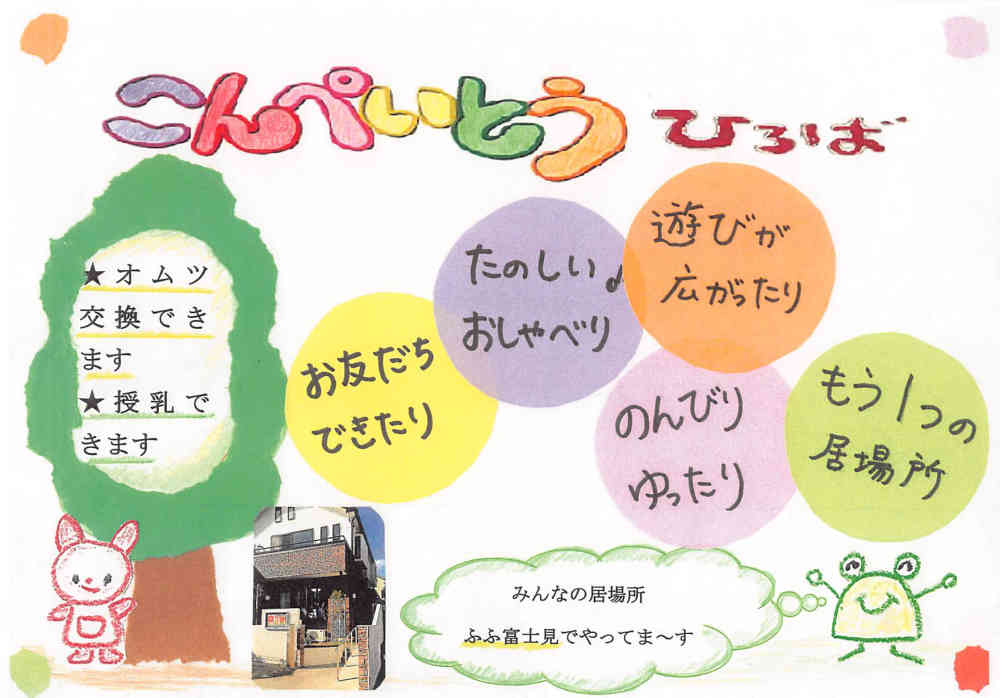 こんぺいとう ひろば
★オムツ
交換でき
ます
★授乳で
きます
お友だち
できたり
たのしい♪
おしゃべり
遊びが
広がったり
のんびり
ゆったり
もう1つの
居場所
みんなの居場所
ふふ富士見でやってま～す